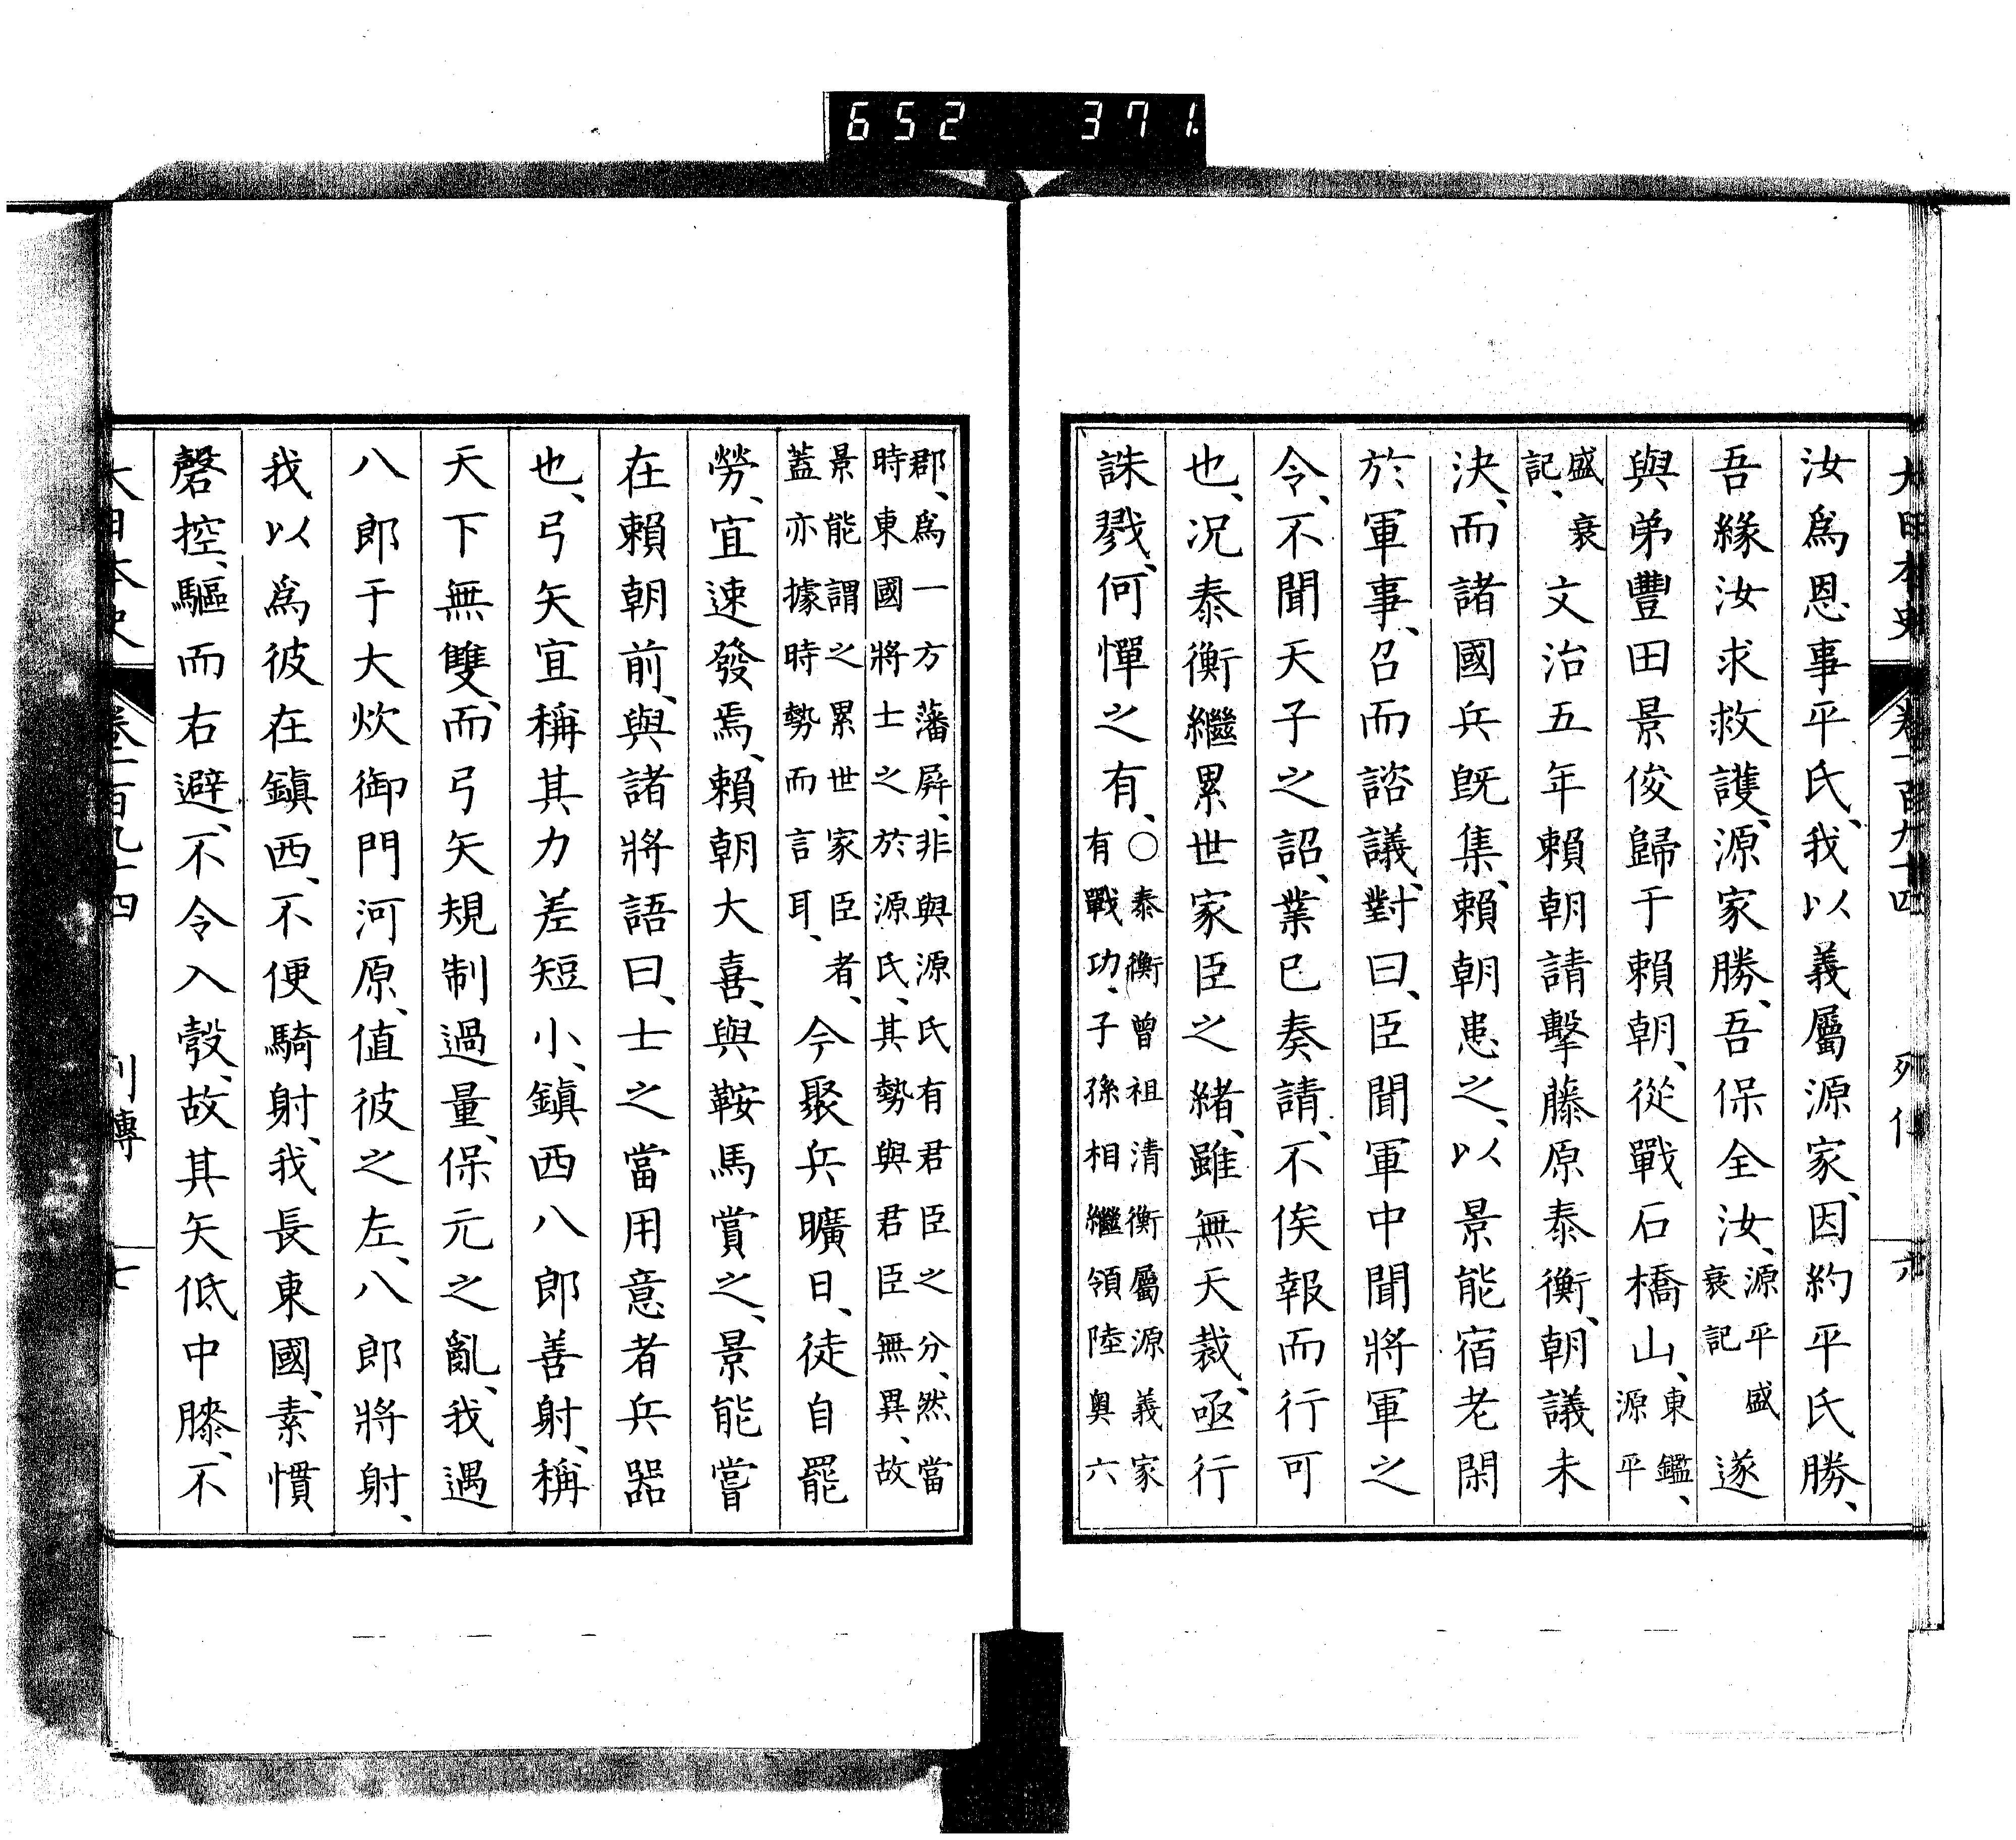 652 371
大日本史 卷一百九十四 列傳 六
汝爲恩事平氏、我以義屬源家、因約平氏勝、
吾緣汝求救護、源家勝、吾保全汝、源平盛衰記 遂
與弟豐田景俊歸于賴朝、從戰石橋山、東鑑、源平
盛衰記、 文治五年賴朝請擊藤原泰衡、朝議未
決、而諸國兵旣集、賴朝患之、以景能宿老閑
於軍事、召而諮議、對曰、臣聞軍中聞將軍之
令、不聞天子之詔、業已奏請、不俟報而行可
也、况泰衡繼累世家臣之緖、雖無天裁、亟行
誅戮、何憚之有、○泰衡曾祖淸衡屬源義家有戰功、子孫相繼領陸奧六
郡、爲一方藩屛、非與源氏有君臣之分、然當時東國將士之於源氏、其勢與君臣無異、故
景能謂之累世家臣者、蓋亦據時勢而言耳、 今聚兵曠日、徒自罷
勞、宜速發焉、賴朝大喜、與鞍馬賞之、景能嘗
在賴朝前、與諸將語曰、士之當用意者兵器
也、弓矢宜稱其力差短小、鎭西八郎善射、稱
天下無雙、而弓矢規制過量、保元之亂、我遇
八郎于大炊御門河原、値彼之左、八郎將射、
我以爲彼在鎭西、不便騎射、我長東國、素慣
磬控、驅而右避、不令入彀、故其矢低中膝、不
大日本史 卷一百九十四 列傳 七